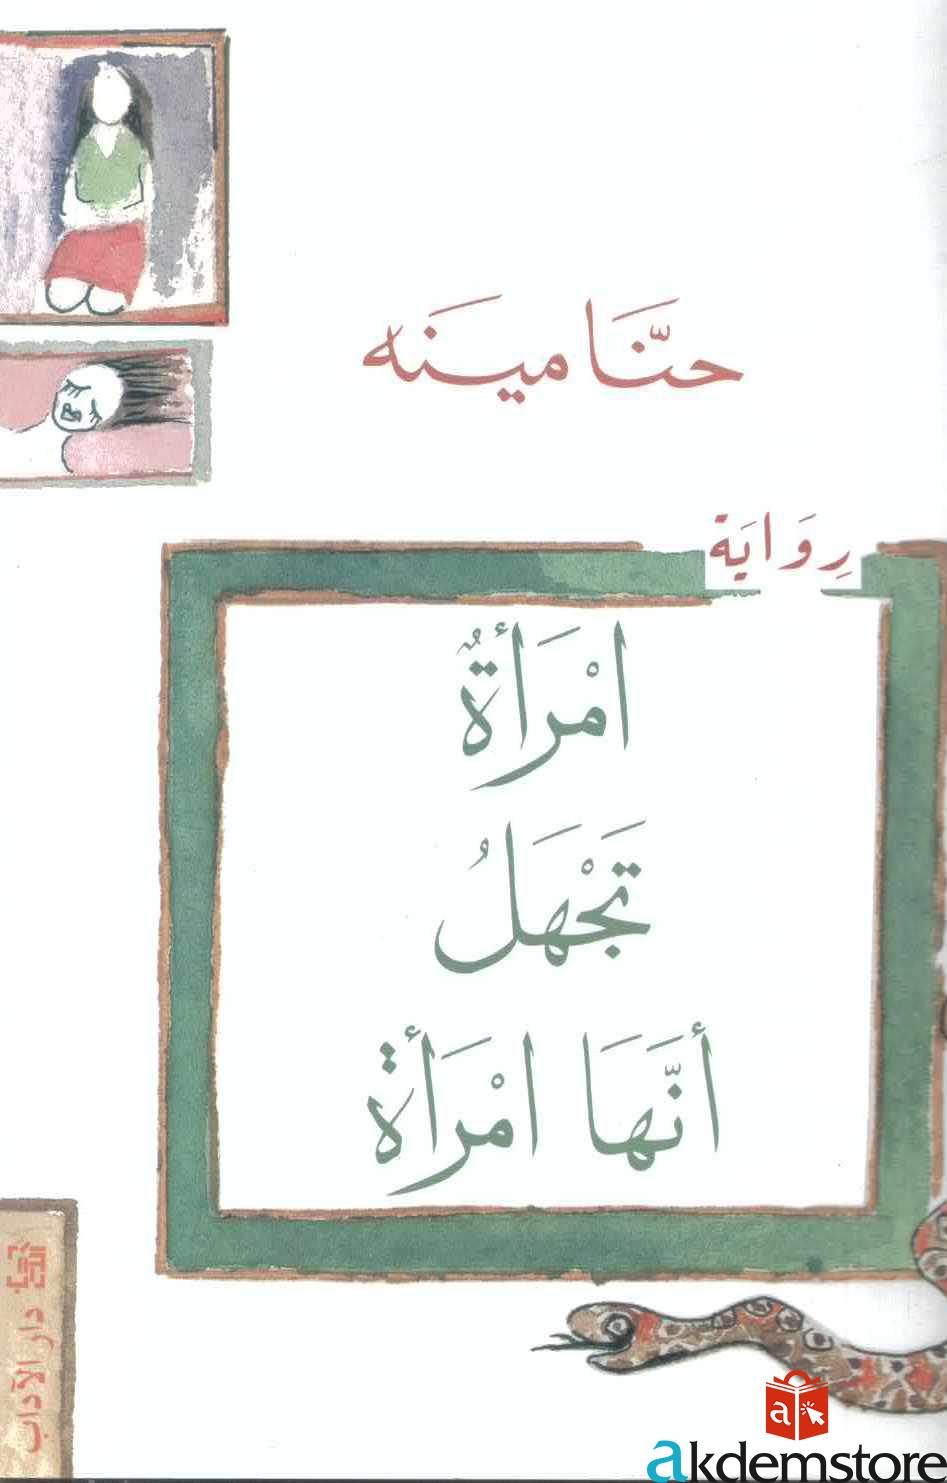 حنَّا مينَه
رِوَايَة
امْرَأةٌ
تَجْهَلُ
أنَّهَا امْرَأة
دار الآداب
a
akdemstore